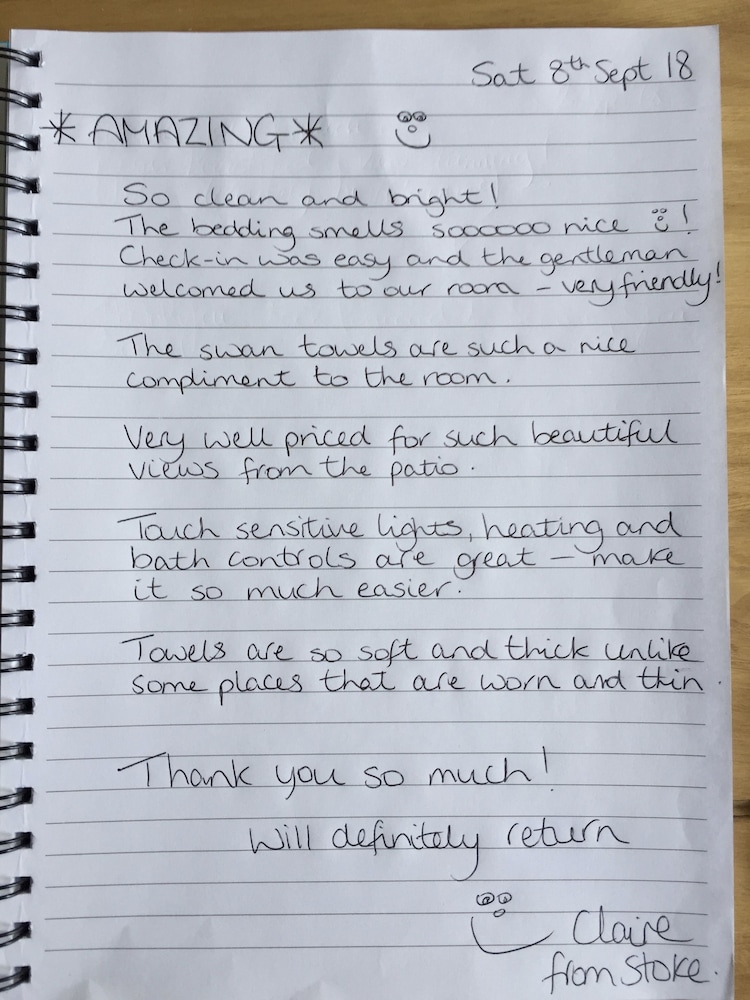 Sat 8th Sept 18
*AMAZING*
So clean and bright!
The bedding smells soooooo nice !
Check-in was easy and the gentleman
welcomed us to our room - very friendly!
The swan towels are such a nice
compliment to the room.
Very well priced for such beautiful
views from the patio.
Touch sensitive lights, heating and
bath controls are great - make
it so much easier.
Towels are so soft and thick unlike
some places that are worn and thin.
Thank you so much!
Will definitely return
Claire
from Stoke.